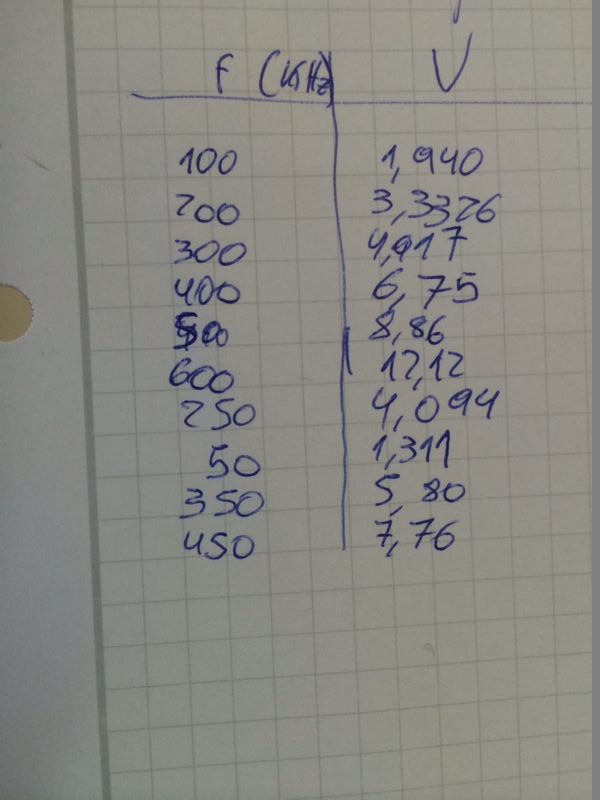 f (KHz) V
100 1,940
200 3,3326
300 4,917
400 6,75
500 8,86
600 12,12
250 4,094
50 1,311
350 5,80
450 7,76